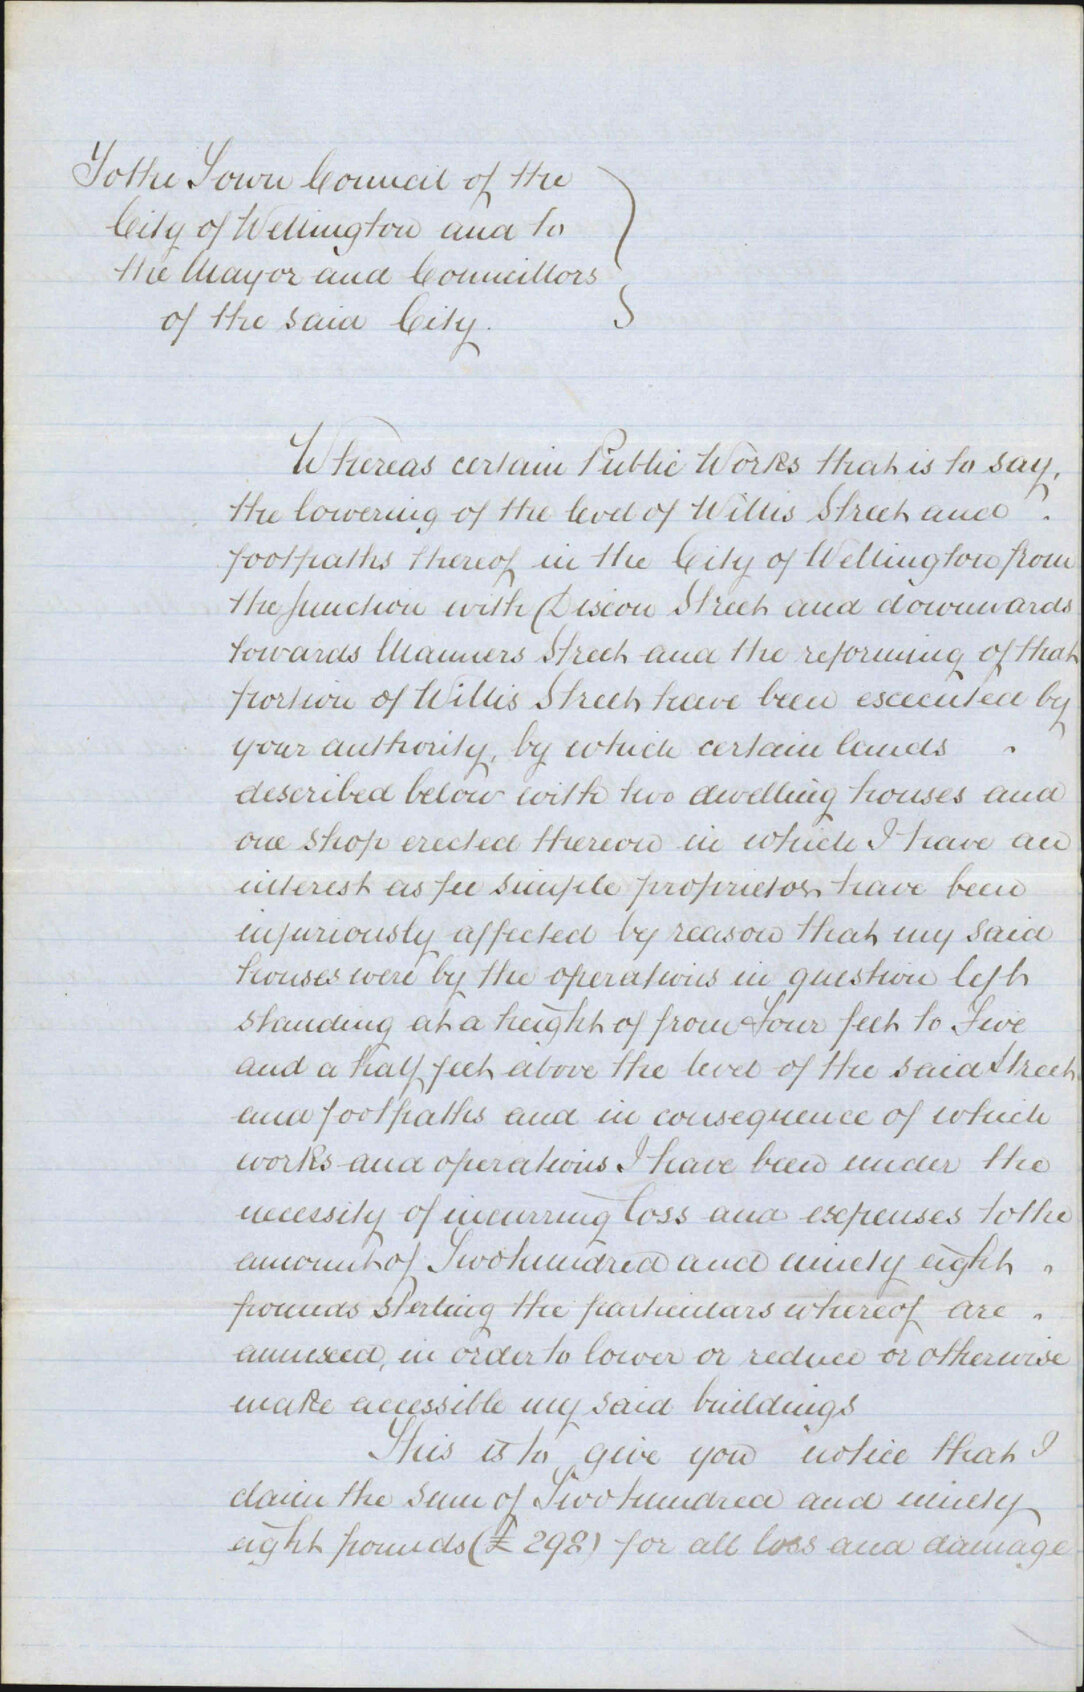 To the Town Council of the
City of Wellington and to
the Mayor and Councillors
of the said City.
Whereas certain Public Works that is to say,
the lowering of the level of Willis Street and
footpaths thereof in the City of Wellington from
the Junction with Dixon Street and downwards
towards Manners Street and the reforming of that
portion of Willis Street have been executed by
your authority, by which certain lands
described below with two dwelling houses and
one shop erected thereon in which I have an
interest as fee simple proprietor have been
injuriously affected by reason that my said
houses were by the operations in question left
standing at a height of from Four feet to Five
and a half feet above the level of the said Street
and footpaths and in consequence of which
works and operations I have been under the
necessity of incurring loss and expenses to the
amount of Two hundred and ninety eight
pounds sterling the particulars whereof are
annexed, in order to lower or reduce or otherwise
make accessible my said buildings
This is to give you notice that I
claim the sum of Two hundred and ninety
eight pounds (£ 298) for all loss and damage